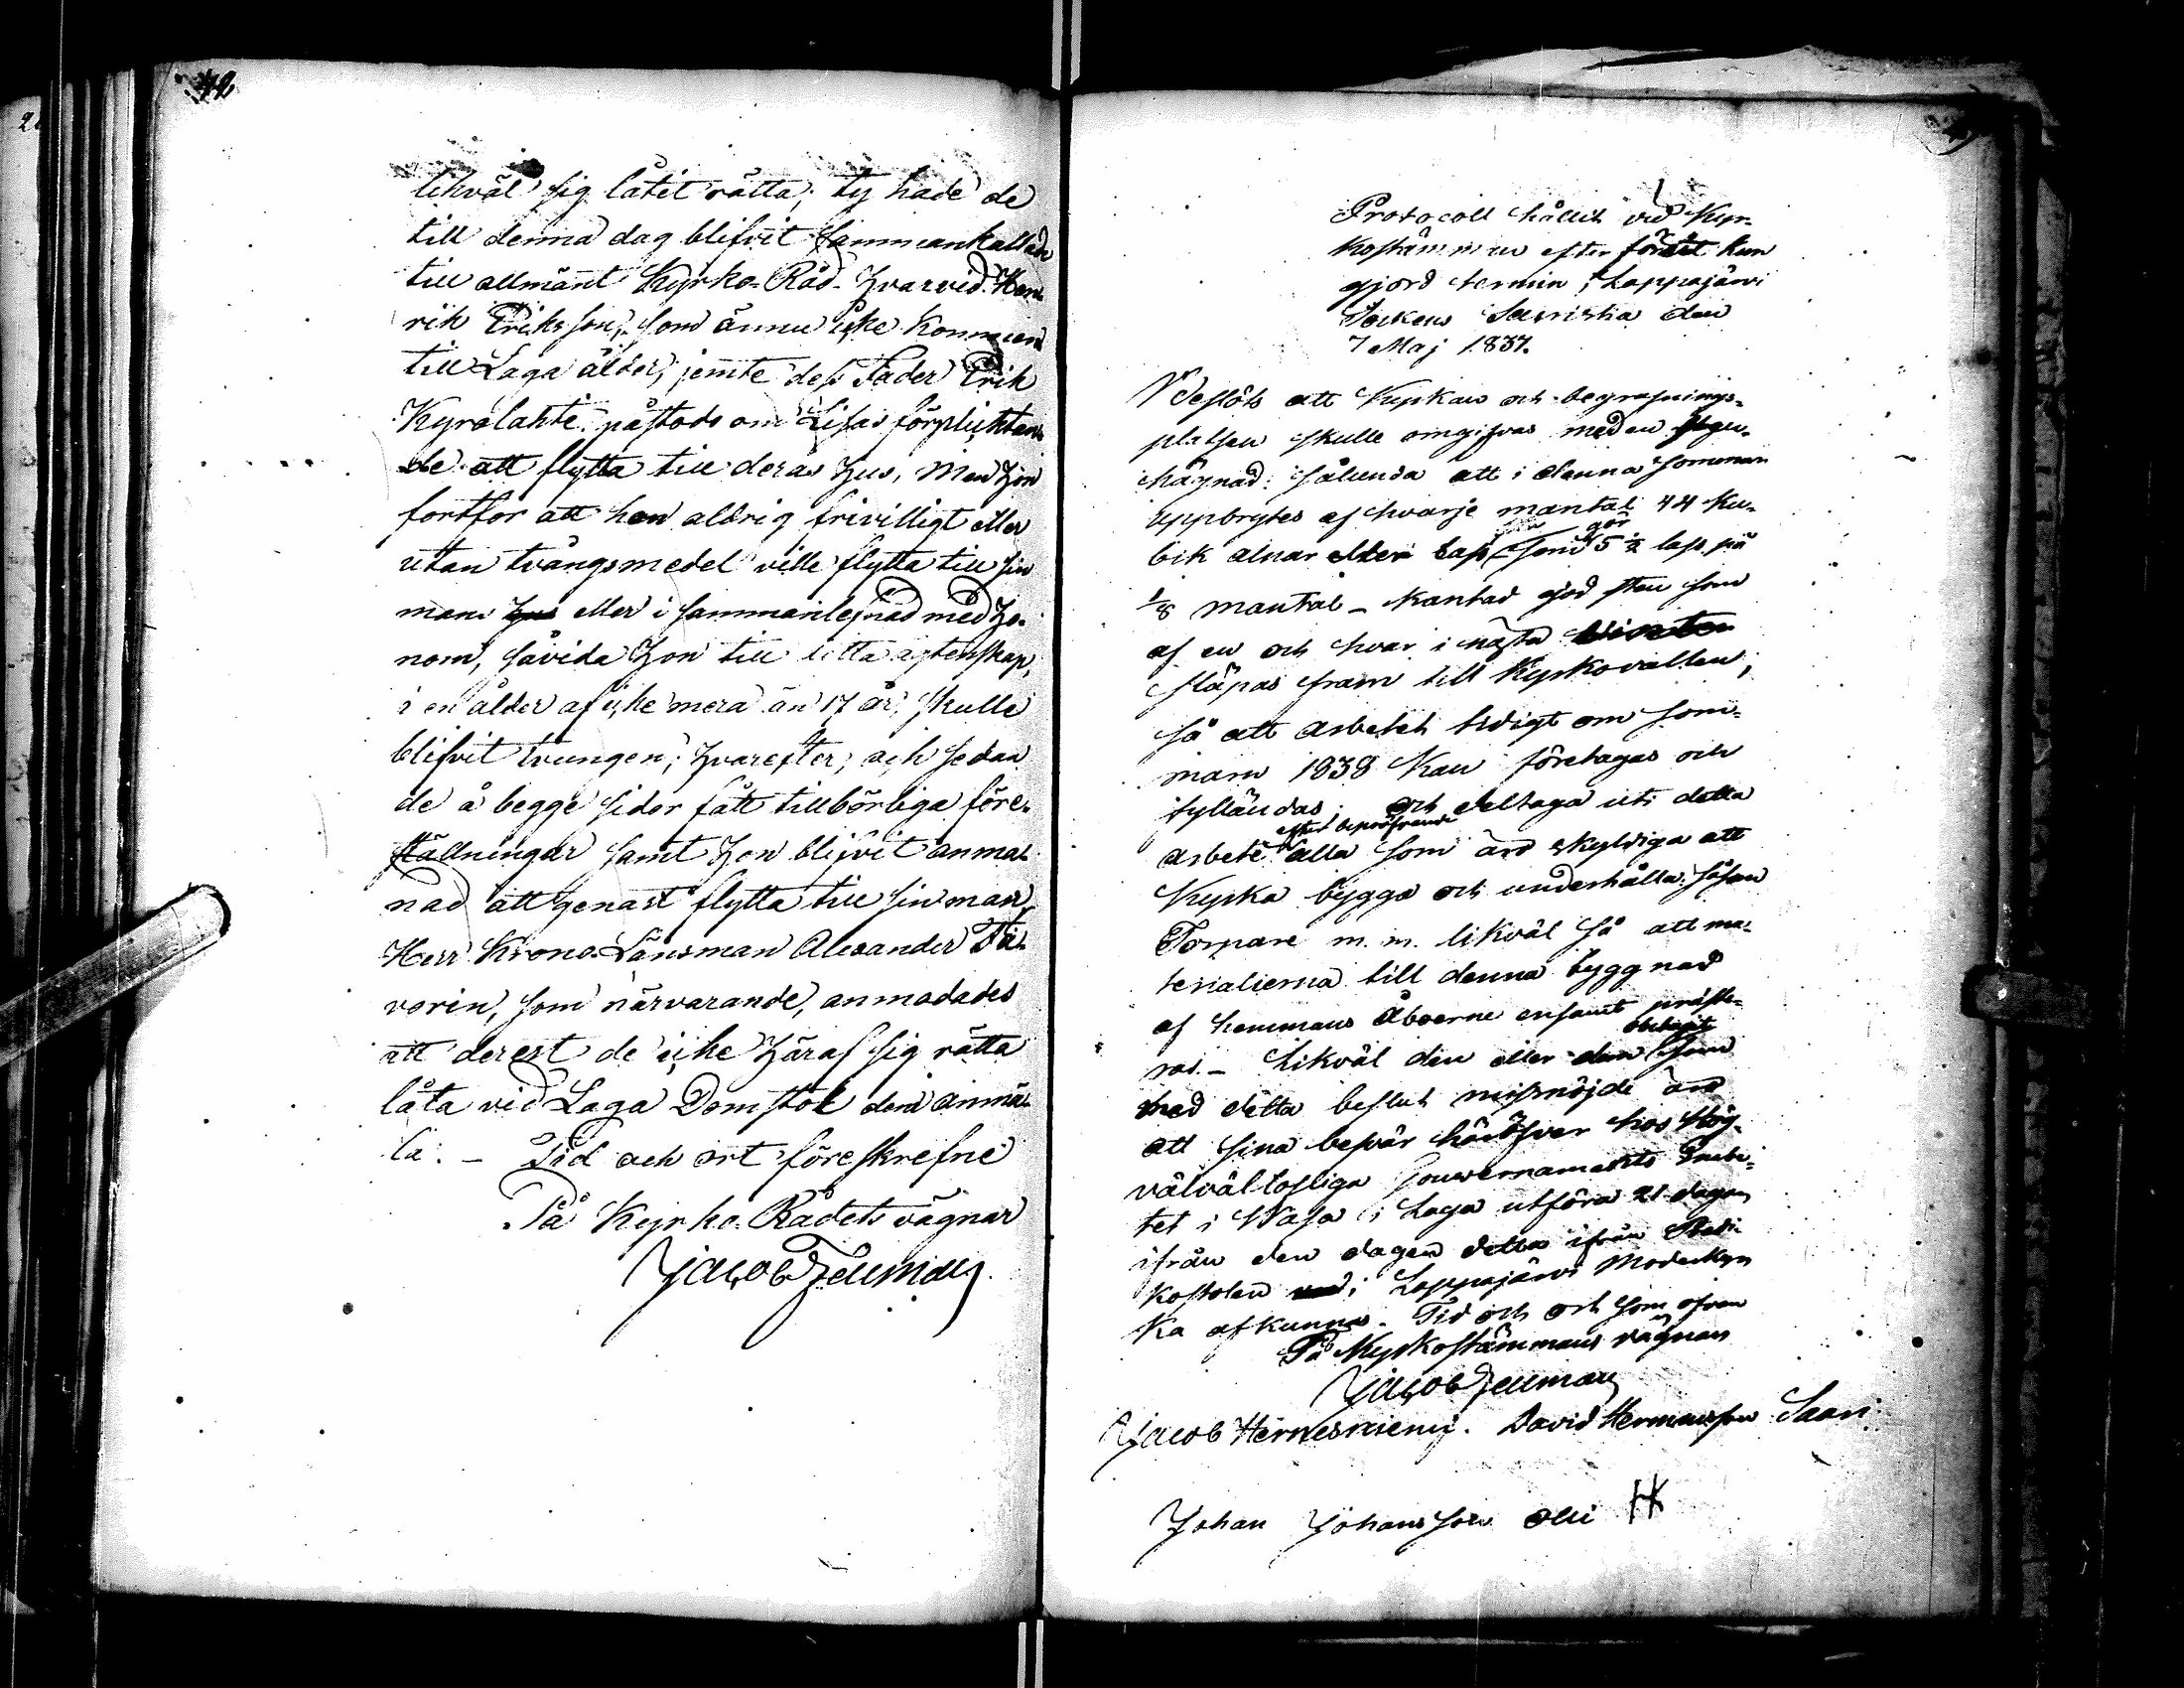 42
likväl sig låtit rätta; ty hade de
till denna dag blifvit sammankallade
till allmänt Kyrko-Råd. Hvarvid Hen-
rik Eriksson, som ännu icke kommen
till Laga ålder, jemte dess Fader Erik
Kyrölahti påstods om Lisas förpligtan-
de att flytta till deras hus, Men hon
fortfor att hon aldrig frivilligt eller
utan tvångsmedel ville flytta till sin
man hus eller i sammanlefnad med ho-
nom, såvida hon till detta ägtenskap,
i en ålder af icke mera än 17 år, skulle
blifvit tvungen; hvarefter, och sedan
de å begge sidor fått tillbörliga före-
ställningar samt hon blifvit anma-
nad att genast flytta till sin man,
Herr Krono-Länsman Alexander Fa-
vorin, som närvarande, anmodades
att derest de icke häraf sig rätta
låta vid Laga Domstol dem anmä-
la. – Tid och ort föreskrefne
På Kyrko-Rådets vägnar
Jacob Hellman
Protocoll hållit vid Kyr-
kostämman efter förut kun
gjord termin i Lappajärvi
Sockens Sacristia den
7 Maj 1837.
Beslöts att Kyrkan och begrafnings-
platsen skulle omgifvas med en sten-
hägnad: sålunda att i denna sommar
uppbrytes af hvarje mantal 44 ku-
bik alnar eller lass som gör 5 ½ lass på
1/8 mantal – kantad god sten som
af en och hvar i nästa vinter
släpas fram till Kyrkovallen;
så att arbetet tidigt om som-
maren 1838 kan företagas och
fylländas; och deltaga uti detta
efter bepröfvande
arbete alla som äro skyldiga att
Kyrka bygga och underhålla, såsom
Torpare m. m. likväl så att ma-
terialierna till denna byggnad
af hemmans Åboerne ensamt præste-
ras. – Likväl den eller dem som
med detta beslut missnöjde äro
att sina besvär häröfver hos Hög-
välvälloflige Gouvernements Embe-
tet i Wasa i Laga utföra 21 dagen
ifrån den dagen detta ifrån Predi-
kostolen i Lappajärvi Moderkyr
ka afkunnas. Tid och ort som ofvan
På Kyrkostämmans vägnar
Jacob Hellman
Jacob Hernesniemi. David Hermansson Saari
Johan Johansson Olli HK